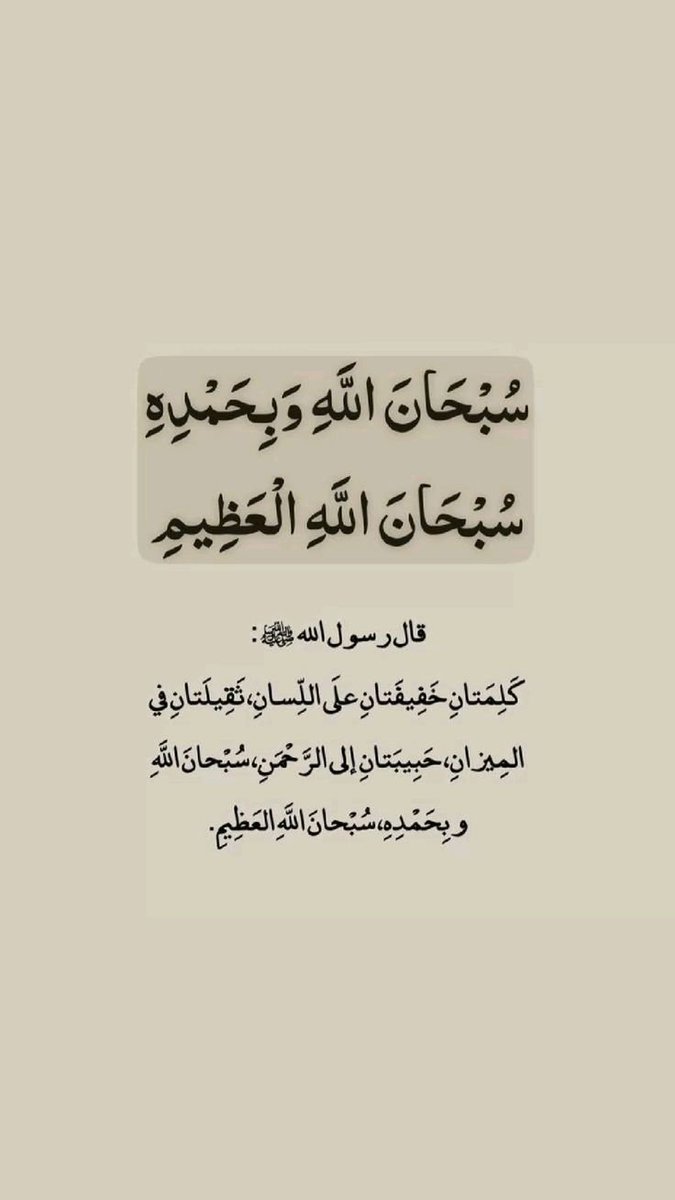 سُبْحَانَ اللَّهِ وَبِحَمْدِهِ
سُبْحَانَ اللَّهِ الْعَظِيمِ
قال رسول الله ﷺ :
كَلِمَتانِ خَفِيفَتانِ علَى اللِّسانِ، ثَقِيلَتانِ في
المِيزانِ، حَبِيبَتانِ إلى الرَّحْمَنِ، سُبْحانَ اللَّهِ
وبِحَمْدِهِ، سُبْحانَ اللَّهِ العَظِيمِ.